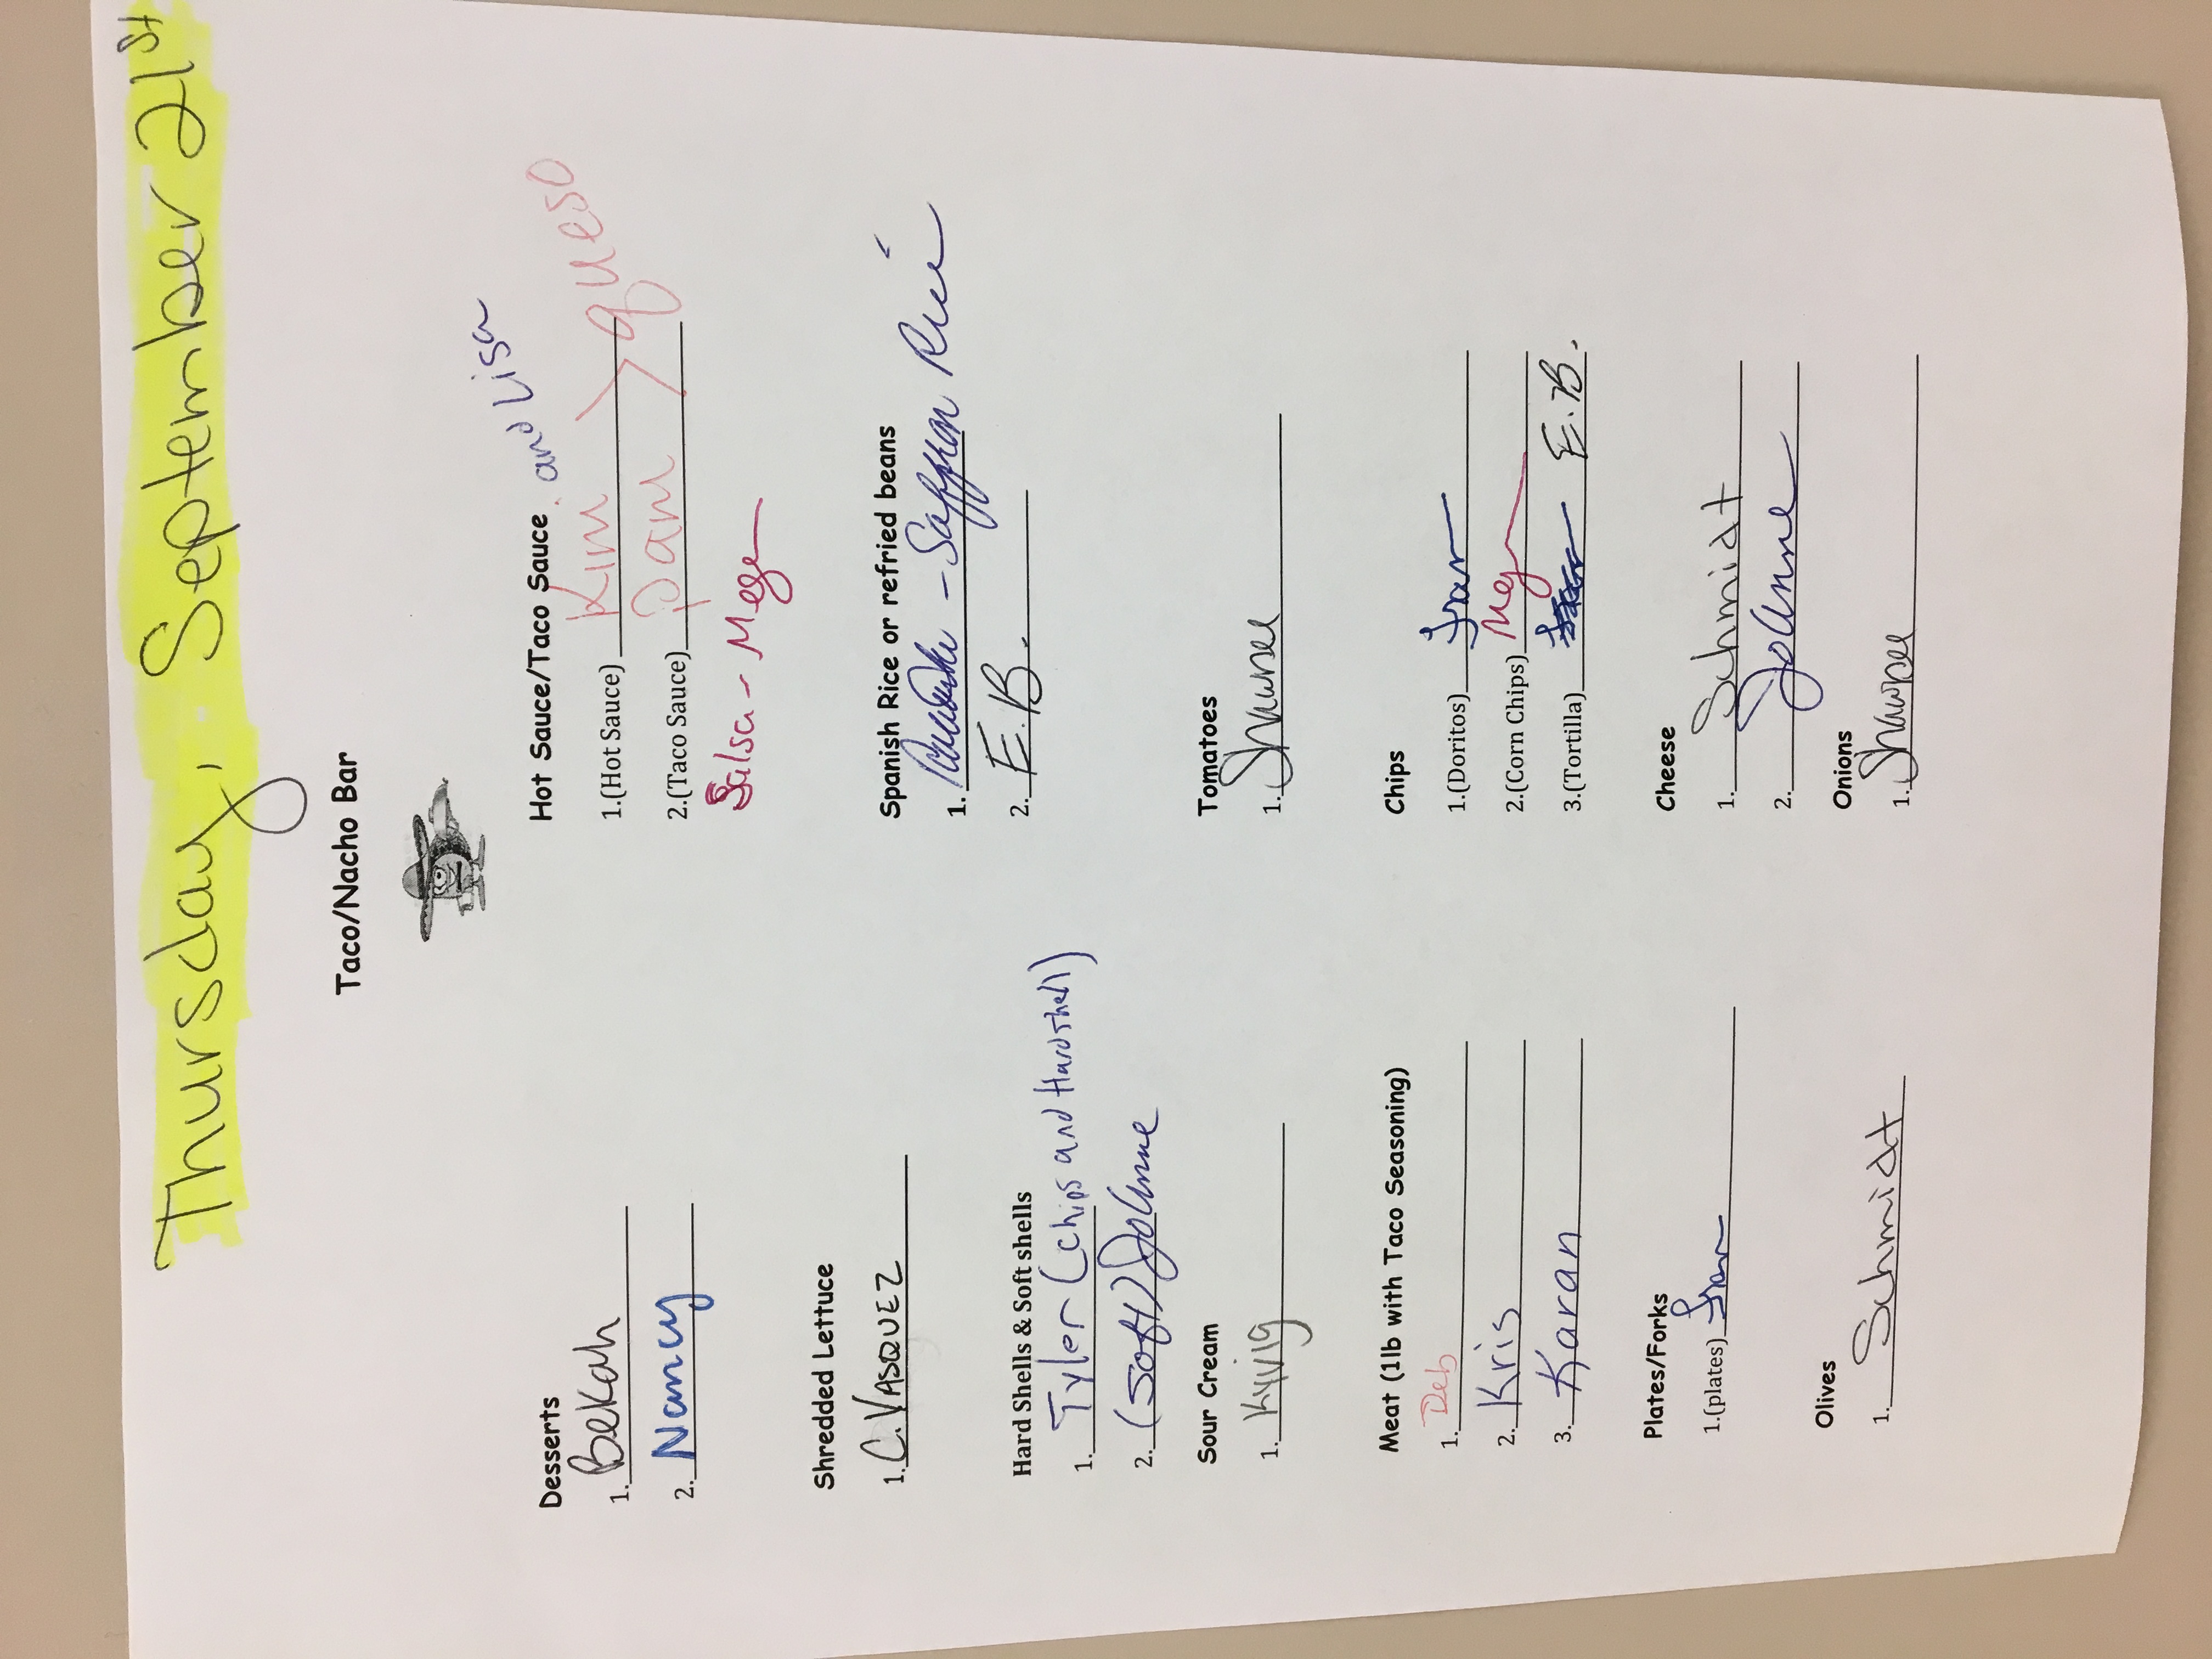 Thursday, September 21st
Taco/Nacho Bar
Desserts
1. Bekah
2. Nancy
Shredded Lettuce
1. C. VASQUEZ
Hard Shells & Soft shells
1. Tyler (Chips and Hardshell)
2. (Soft) JoAnne
Sour Cream
1. Kyvig
Meat (1lb with Taco Seasoning)
1. Deb
2. Kris
3. Karan
Plates/Forks
1.(plates) Fran
Olives
1. Schmidt
Hot Sauce/Taco Sauce and Lisa
1.(Hot Sauce) Kim > queso
2.(Taco Sauce) Pam
Salsa - Meg
Spanish Rice or refried beans
1. - Saffron Rice
2. E.B.
Tomatoes
1. Shawnee
Chips
1.(Doritos) Fran
2.(Corn Chips) Meg
3.(Tortilla) E.B.
Cheese
1. Schmidt
2. JoAnne
Onions
1. Shawnee